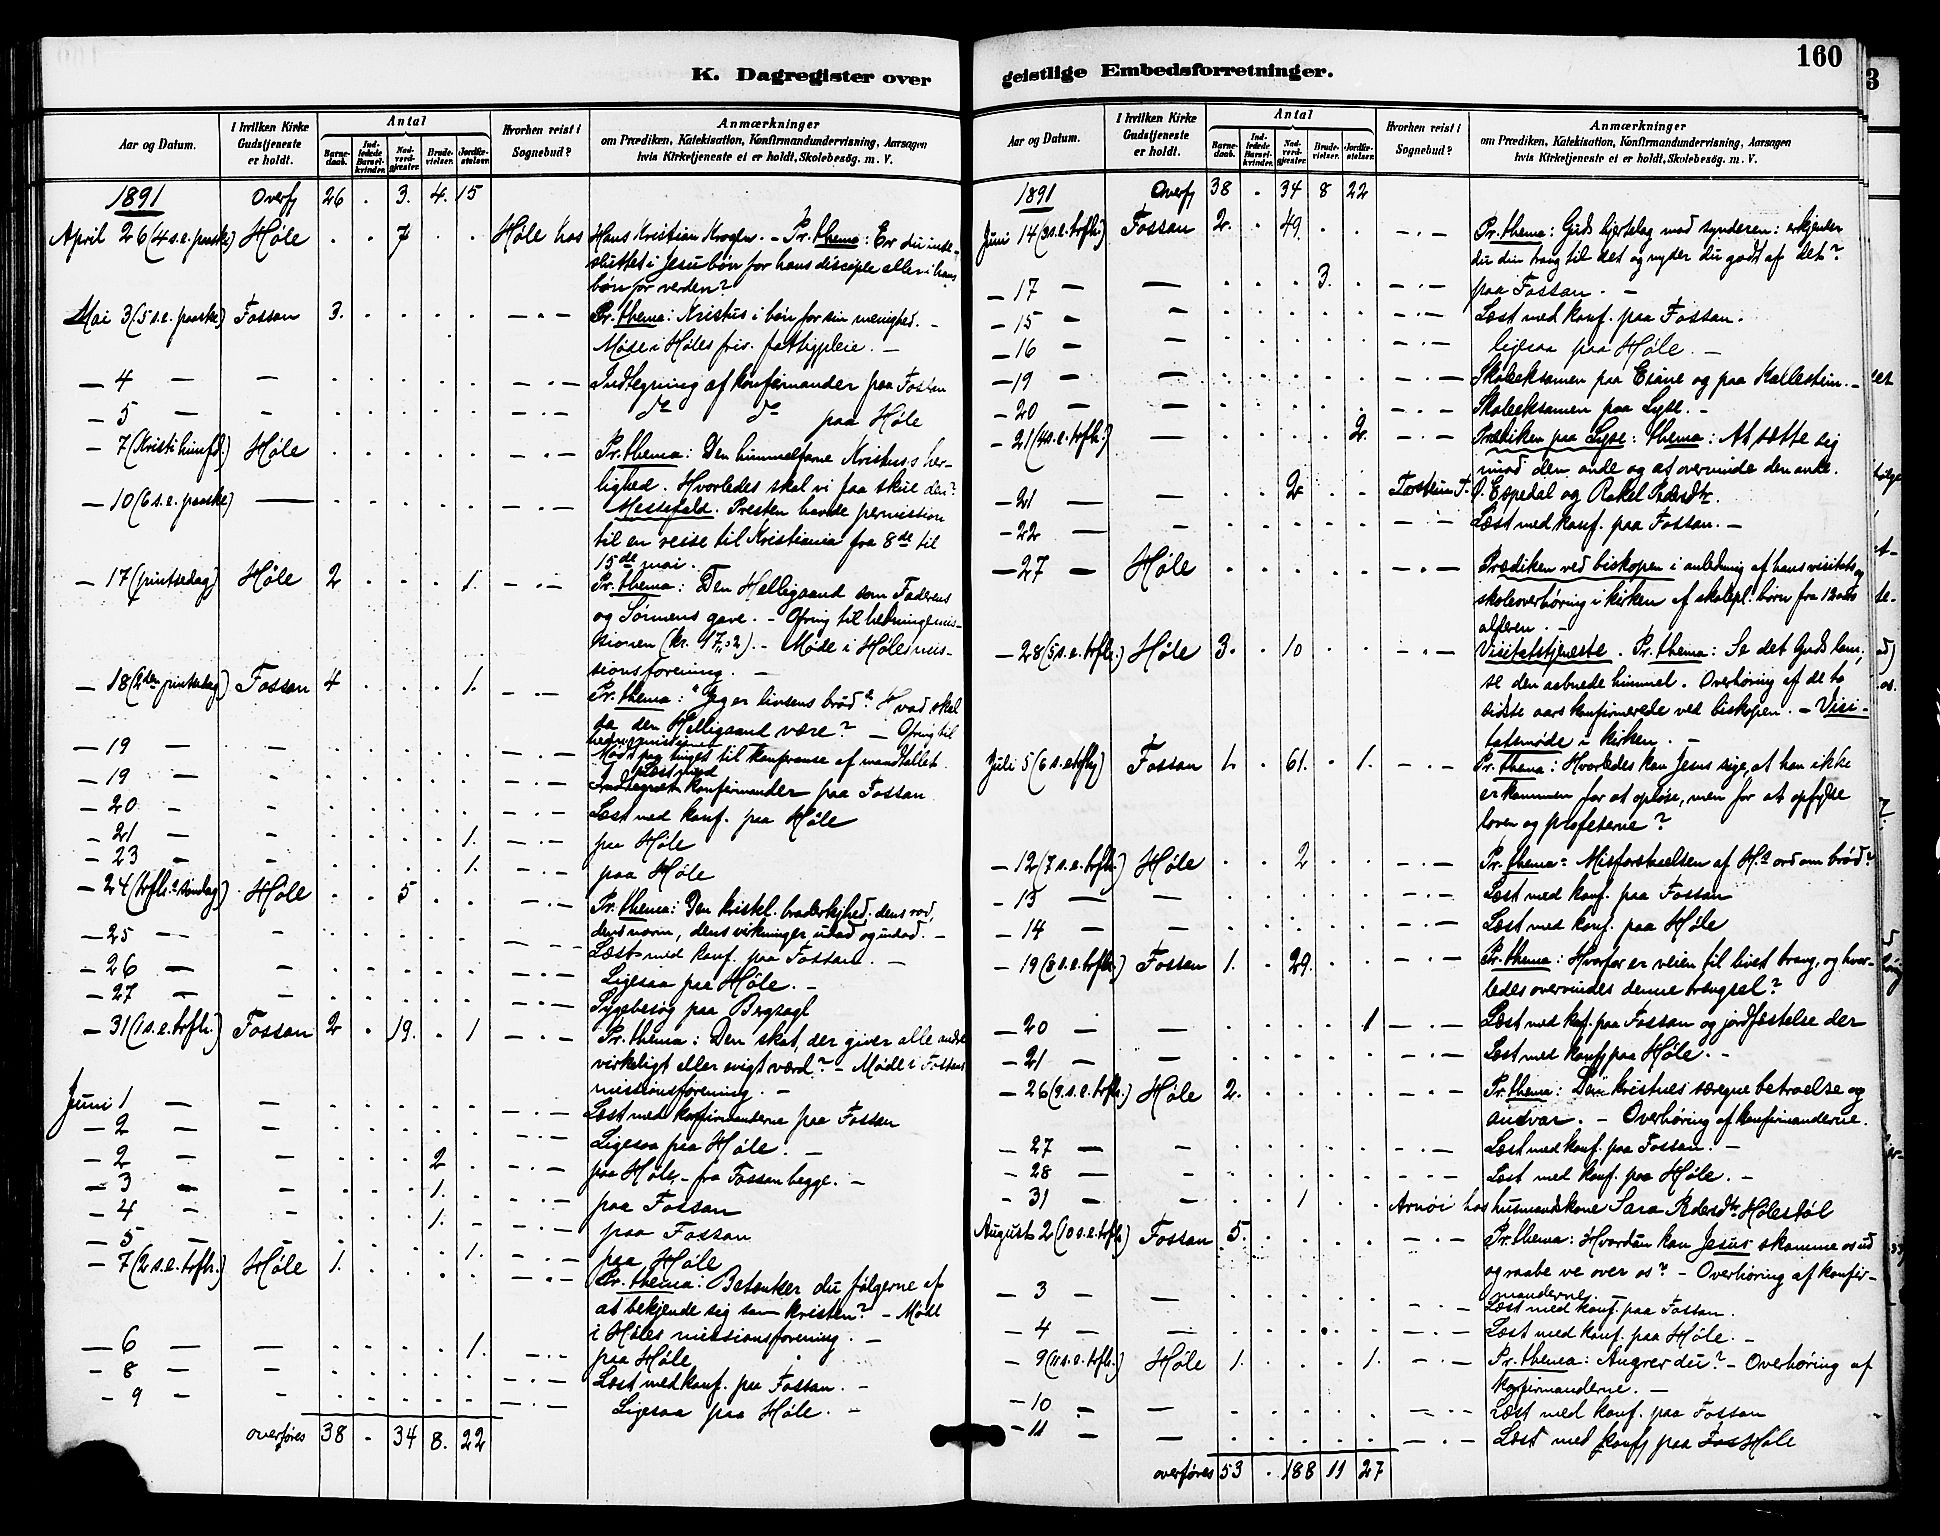 160
K. Dagregister over
geistlige Embedsforretninger.
Aar og Datum.
I hvilken Kirke Gudstjeneste er holdt.
Antal
Barnedaab.
Indledede Barselkvinder.
Nadverdgjester.
Brudevielser.
Jordfæstelser.
Hvorhen reist i Sognebud?
Anmærkninger
om Prædiken, Katekisation, Konfirmandundervisning, Aarsagen
hvis Kirketjeneste ei er holdt, Skolebesøg. m. V.
1891 Overf 26 . 3. 4. 15
April 26 (4 s.e. paaske) Høle . . 7 . . Høle hos Hans Kristian Krogen. - Pr. thema: Er du inde-
sluttet i Jesu bøn for hans disciple eller i hans
bøn for verden?
Mai 3 (5 s.e. paaske) Fossan 3. . . . . — . — Pr. thema: Kristus i bøn for sin menighed. -
Møde i Høles friv. fattigpleie. —
— 4 — — . . . . . — . — Indtegning af konfirmander paa Fossan
— 5 — — . . . . . — . — do do paa Høle
— 7 (Kristi himfd.) Høle . . . . . — . — Pr. thema: Den himmelfarne Kristus's her-
lighed. Hvorledes skal vi faa skue den?
— 10 (6 s.e. paaske) — . . . . . Messefald. Presten havde permission
til en reise til Kristiania fra 8de til
15de mai.
— 17 (pintsedag) Høle 2 . . . 1. — . — Pr. thema: Den Helligaand som Faderens
og Sønnens gave. - Ofring til hedningemis-
sionen (kr. 17,32). - Møde i Høle mis-
sionsforening. —
— 18 (2den pintsedag) Fossan 4 . . . 1. — . — Pr. thema: "Jeg er livsens brød". Hvad skal
da den Helligaand være? - Ofring til
hedningmissionen
— 19 — — . . . . . — . — Møde paa tinget til konferense af mandtallet.
— 19 — — . . . . . — . — Læst med konfirmander paa Fossan
— 20 — — . . . . . — . — Læst med konf. paa Høle
— 21 — — . . . . 1. — . — paa Høle
— 23 — — . . . . 1. — . — paa Høle
— 24 (trefh.s søndag) Høle . . 5 . . — . — Pr. thema: Den kristel. broderkjhed. dens rod,
dens navn, dens virkninger indad og udad. —
— 25 — — . . . . . — . — Læst med konf. paa Fossan. —
— 26 — — . . . . . — . — Ligesaa paa Høle. —
— 27 — — . . . . . — . — Sygebesøg paa Bergsagl
— 31 (1 s.e. trfh.) Fossan 2 . 19. . 1 — . — Pr. thema: Den skat, der giver alle andre
virkeligt eller evigt værd? - Møde i Fossans
missionsforening. —
Juni 1 — — . . . . . — . — Læst med konfirmanderne paa Fossan
— 2 — — . . . . . — . — Ligesaa paa Høle. —
— 2 — — . . . 2 . — . — paa Høle, - fra Fossan begge. —
— 3 — — . . . 1. . — . — paa Fossan
— 4 — — . . . 1. . — . — paa Fossan
— 5 — — . . . . 1. — . — paa Høle
— 7 (2 s.e. trfh.) Høle 1. . . . . — . — Pr. thema: Betænker du følgerne af
at bekjende sig som kristen? - Møde
i Høles missionsforening. —
— 6 — — . . . . 1. — . — paa Høle
— 8 — — . . . . . — . — Læst med konf. paa Fossan. —
— 9 — — . . . . . — . — Ligesaa paa Høle. —
overføres 38 . 34 8. 22
Aar og Datum.
I hvilken Kirke Gudstjeneste er holdt.
Antal
Barnedaab.
Indledede Barselkvinder.
Nadverdgjester.
Brudevielser.
Jordfæstelser.
Hvorhen reist i Sognebud?
Anmærkninger
om Prædiken, Katekisation, Konfirmandundervisning, Aarsagen
hvis Kirketjeneste ei er holdt, Skolebesøg. m. V.
1891 Overf 38 . 34 8 22
Juni 14 (3 s.e. trfh.) Fossan 2. . 49. . . — . — Pr. thema: Guds hjertelag mod synderen: erkjender
du din trang til det og nyder du godt af det?
— 17 — — . . . 3. . — . — paa Fossan. —
— 15 — — . . . . . — . — Læst med konf. paa Fossan.
— 16 — — . . . . . — . — ligesaa paa Høle. —
— 19 — — . . . . . — . — Skoleeksamen paa Eiane og paa Kallestein. —
— 20 — — . . . . . Skoleeksamen paa Lyse. —
— 21 (4 s.e. trfh.) — . . . . 2. — . — Prædiken paa Lyse: thema: At sætte sig
imod den onde og at overvinde den onde.
— 21 — — . . 2 . . O. Espedal og Rakel Pedersdtr.
— 22 — — . . . . . — . — Læst med konf. paa Fossan. —
— 27 — Høle . . . . . Prædiken ved biskopen i anledning af hans visitats og
skoleoverhøring i kirken af skolepl. børn fra 12 aars
alderen. —
— 28 (5 s.e. trfh.) Høle 3. . 10 . . — . — Visitatstjeneste. Pr. thema: Se det Guds lam,
se den aabnede himmel. Overhøring af de to
sidste aars konfirmerede ved biskopen. - Visi-
tatsmøde i kirken. —
Juli 5 (6 s.e. trfh) Fossan 1. . 61. . 1. — . — Pr. thema: Hvorledes kan Jesus sige, at han ikke
er kommen for at opløse, men for at opfylde
loven og profeterne?
— 12 (7 s.e. trfh.) Høle . . 2 . . — . — Pr. thema: Misforstaaelsen af Hs ord om brød?
— 13 — — . . . . . — . — Læst med konf. paa Fossan
— 14 — — . . . . . — . — Læst med konf. paa Høle
— 19 (8 s.e. trfh.) Fossan 1. . 29. . . — . — Pr. thema: Hvorfor er veien til livet trang, og hvor-
ledes overvindes denne trængsel?
— 20 — — . . . . 1 — . — Læst med konf. paa Fossan og jordfæstelse der
— 21 — — . . . . . — . — Læst med konf paa Høle. —
— 26 (9. s.e. trfh.) Høle 2. . . . . — . — Pr. thema: Den kristnes særegne betroelse og
ansvar. — Overhøring af konfirmanderne.
— 27 — — . . . . . — . — Læst med konf. paa Fossan. —
— 28 — — . . . . . — . — Læst med konf. paa Høle. —
— 31 — — . . 1 . . Arnøi hos husmandskone Sara Pedersdtr Hølestøl
August 2 (10 s.e. trfh) Fossan 5. . . . . Pr. thema: Hvordan kan Jesus skamme os ud
og raabe ve over os? - Overhøring af konfir-
manderne.
— 3 — — . . . . . — . — Læst med konf. paa Fossan.
— 4 — — . . . . . — . — Læst med konf. paa Høle. —
— 9 (11 s.e. trfh.) Høle 1. . . . 1. — . — Pr. thema: Angrer du? - Overhøring af
konfirmanderne. —
— 10 — — . . . . . — . — Læst med konf. paa Fossan
— 11 — — . . . . . — . — Læst med konf paa Høle
overføres 53 . 188 11 27